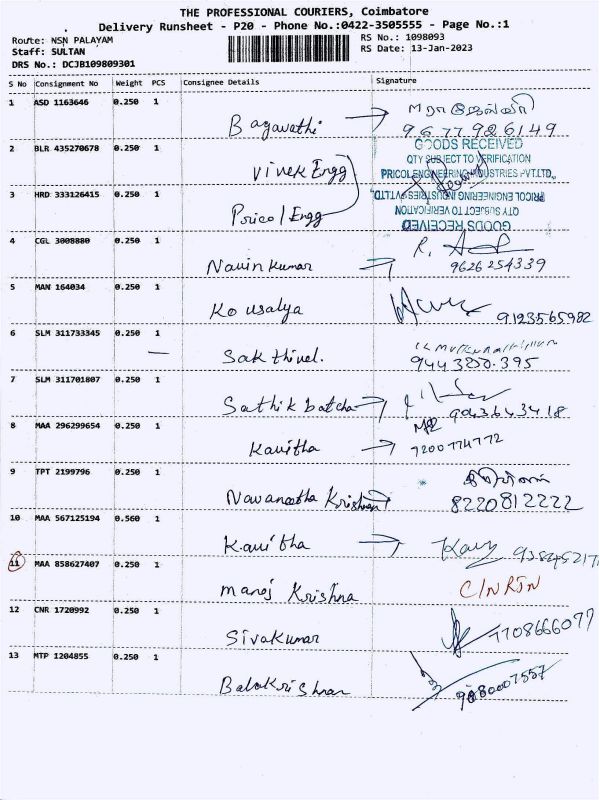 THE PROFESSIONAL COURIERS, Coimbatore
Delivery Runsheet - P20 - Phone No.:0422-3505555 - Page No.:1
Route: NSN PALAYAM
RS No.: 1098093
Staff: SULTAN
RS Date: 13-Jan-2023
DRS No.: DCJB109809301
S No Consignment No Weight PCS Consignee Details Signature
1 ASD 1163646 0.250 1
Bagavathi
9677926149
2 BLR 435270678 0.250 1
Vivek Engg
GOODS RECEIVED
QTY SUBJECT TO VERIFICATION
PRICOL ENGINEERING INDUSTRIES PVT.LTD.,
3 HRD 333126415 0.250 1
Pricol Engg
PRICOL ENGINEERING INDUSTRIES PVT.LTD.,
QTY SUBJECT TO VERIFICATION
GOODS RECEIVED
4 CGL 3008880 0.250 1
Navin kumar
9626254339
5 MAN 164034 0.250 1
Kousalya
9123565982
6 SLM 311733345 0.250 1
Sakthivel.
7 SLM 311701807 0.250 1
Sathik batcha
9043643418
8 MAA 296299654 0.250 1
Kavitha
7200774772
9 TPT 2199796 0.250 1
Navaneetha Krishnan
8220812222
10 MAA 567125194 0.560 1
Kavitha
11 MAA 858627407 0.250 1
Manoj Krishna
C/N RTN
12 CNR 1720992 0.250 1
Sivakumar
7708666077
13 MTP 1204855 0.250 1
Balakrishnan
9080007557